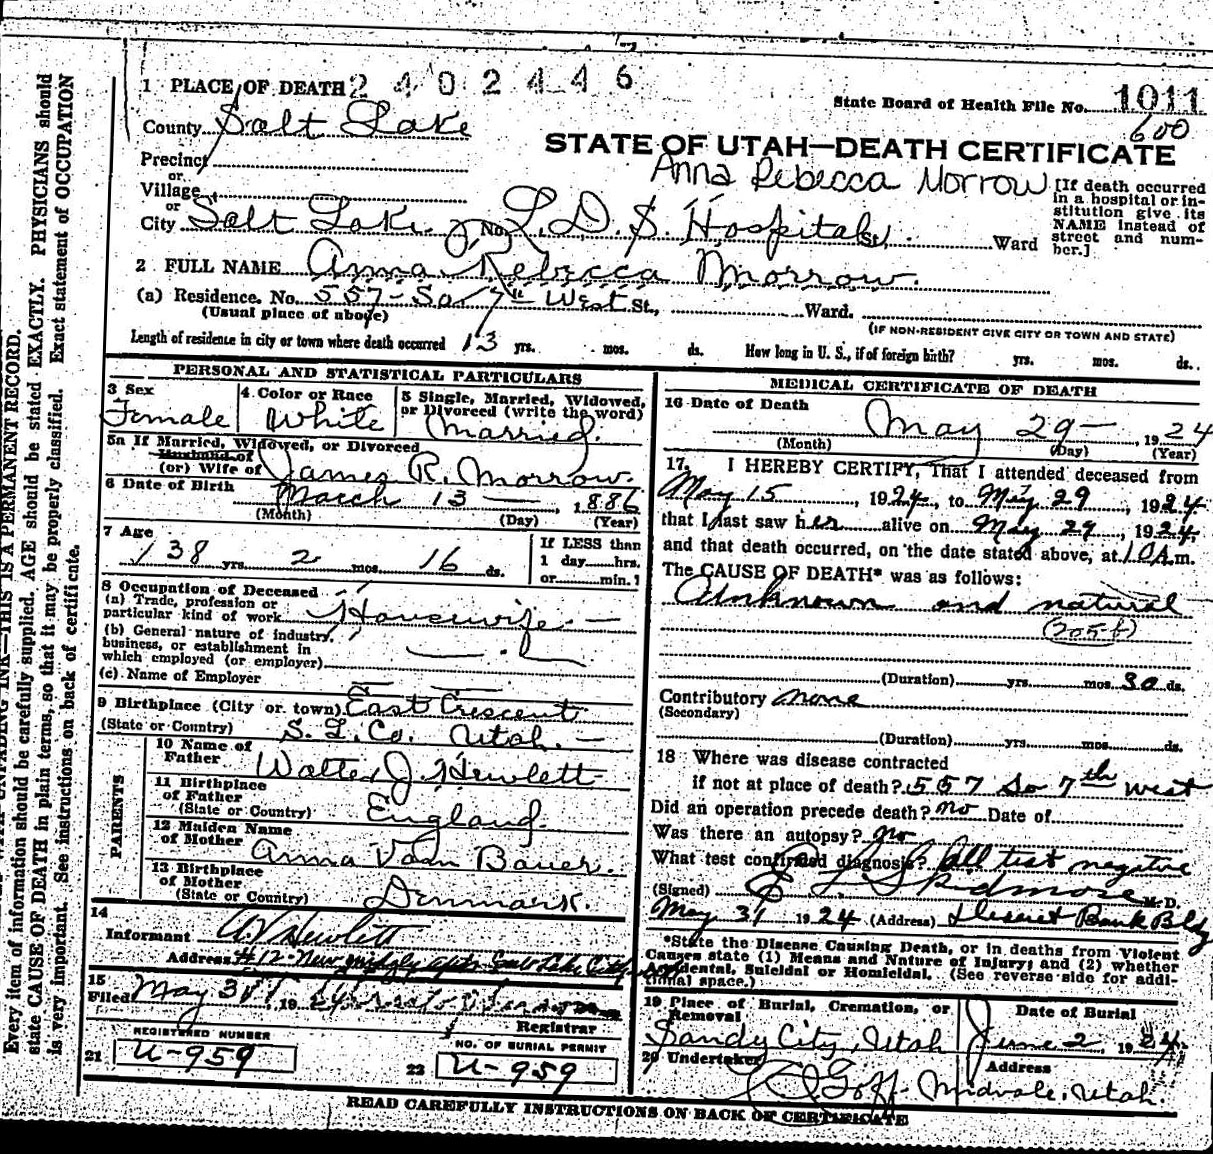 1 PLACE OF DEATH 2402446
State Board of Health File No. 1011
600
County Salt Lake
STATE OF UTAH—DEATH CERTIFICATE
Precinct
or
Anna Rebecca Morrow
Village
or
City Salt Lake No. L.D.S. Hospital St., Ward
[If death occurred in a hospital or institution give its NAME instead of street and number.]
2 FULL NAME Anna Rebecca Morrow.
(a) Residence. No. 557-So 7th West St., Ward.
(Usual place of abode)
(IF NON-RESIDENT GIVE CITY OR TOWN AND STATE)
Length of residence in city or town where death occurred 13 yrs. mos. ds. How long in U. S., if of foreign birth? yrs. mos. ds.
PERSONAL AND STATISTICAL PARTICULARS
3 Sex Female
4 Color or Race White
5 Single, Married, Widowed, or Divorced (write the word) Married.
5a If Married, Widowed, or Divorced
Husband of
(or) Wife of James R. Morrow.
6 Date of Birth March 13 — , 1886
(Month) (Day) (Year)
7 Age
38 yrs. 2 mos. 16 ds.
If LESS than
1 day hrs.
or min.
8 Occupation of Deceased
(a) Trade, profession or
particular kind of work Housewife —
(b) General nature of industry,
business, or establishment in
which employed (or employer)
(c) Name of Employer
9 Birthplace (City or town) East Crescent
(State or Country) S. L. Co. Utah. —
PARENTS
10 Name of
Father Walter J. Hewlett
11 Birthplace
of Father
(State or Country) England.
12 Maiden Name
of Mother Anna Bauer.
13 Birthplace
of Mother
(State or Country) Denmark.
14
Informant Hewlett
Address #12 Salt Lake City
15
Filed May 31 1924
Registrar
REGISTERED NUMBER
21 U-959
NO. OF BURIAL PERMIT
22 U-959
MEDICAL CERTIFICATE OF DEATH
16 Date of Death
May 29 — , 1924
(Month) (Day) (Year)
17. I HEREBY CERTIFY, That I attended deceased from
May 15 , 1924, to May 29 , 1924
that I last saw her alive on May 29 , 1924.
and that death occurred, on the date stated above, at 10 A.m.
The CAUSE OF DEATH* was as follows:
Unknown and natural
(205-b)
(Duration) yrs. mos. 30 ds.
Contributory none
(Secondary)
(Duration) yrs. mos. ds.
18 Where was disease contracted
if not at place of death? 557 So 7th West
Did an operation precede death? no Date of
Was there an autopsy? no
What test confirmed diagnosis? All test negative
(Signed) Skidmore M. D.
May 31 1924 (Address) Deseret Bank Bldg
*State the Disease Causing Death, or in deaths from Violent
Causes state (1) Means and Nature of Injury; and (2) whether
Accidental, Suicidal or Homicidal. (See reverse side for additional space.)
19 Place of Burial, Cremation, or Removal
Sandy City, Utah
Date of Burial
June 2, 1924.
20 Undertaker
Goff
Address
Midvale, Utah.
READ CAREFULLY INSTRUCTIONS ON BACK OF CERTIFICATE
THIS IS A PERMANENT RECORD.
Every item of information should be carefully supplied. AGE should be stated EXACTLY. PHYSICIANS should
state CAUSE OF DEATH in plain terms, so that it may be properly classified. Exact statement of OCCUPATION
is very important. See instructions on back of certificate.